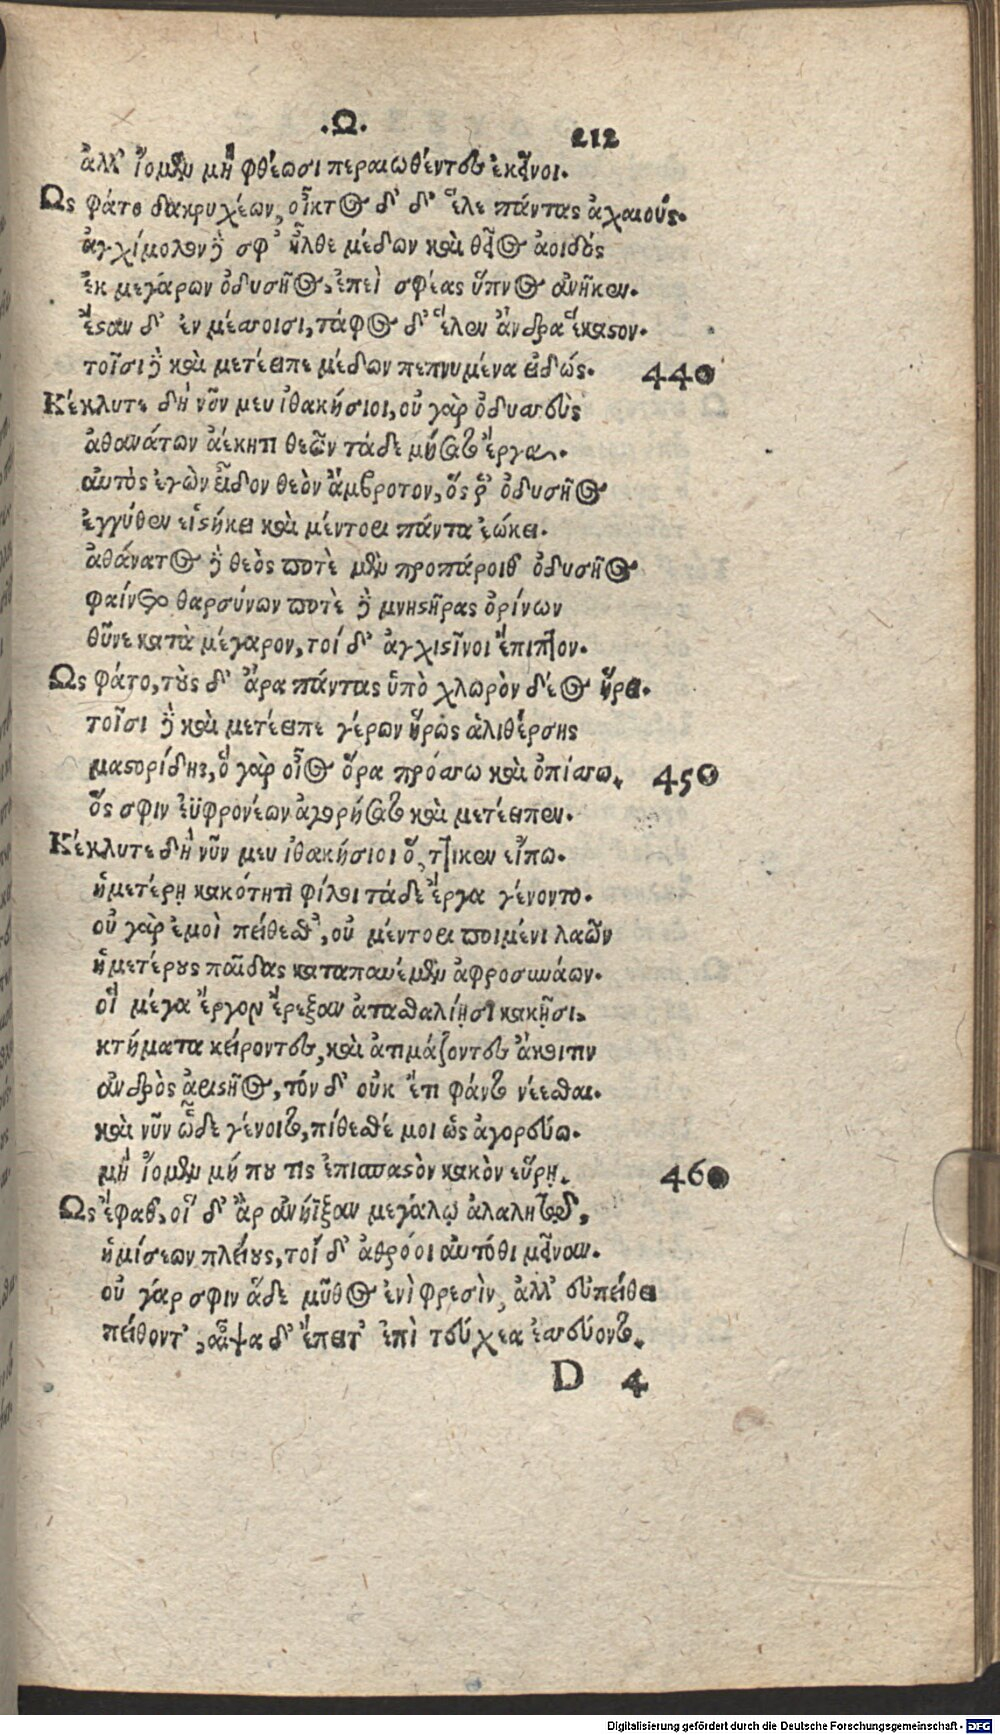 .Ω.
212
ἀλλ' ἴομεν μὴ φθέωσι περαιωθέντες ἐκεῖνοι.
Ὣς φάτο δακρυχέων, οἶκτος δ' δ' ἕλε πάντας ἀχαιούς.
ἀγχίμολον δέ σφ' ἦλθε μέδων καὶ θεῖος ἀοιδός
ἐκ μεγάρων ὀδυσῆος, ἐπεὶ σφέας ὕπνος ἀνῆκεν.
ἔσαν δ' ἐν μέσσοισι, τάφος δ' ἕλεν ἄνδρα ἕκαστον.
τοῖσι δὲ καὶ μετέειπε μέδων πεπνυμένα εἰδώς. 440
Κέκλυτε δὴ νῦν μευ ἰθακήσιοι, οὐ γὰρ ὀδυσσεὺς
ἀθανάτων ἀέκητι θεῶν τάδε μήσατο ἔργα.
αὐτὸς ἐγὼν εἶδον θεὸν ἄμβροτον, ὅς ῥ' ὀδυσῆος
ἐγγύθεν εἱστήκει καὶ μέντοει πάντα ἐώκει.
ἀθάνατος δὲ θεὸς ποτὲ μὲν προπάροιθ' ὀδυσῆος
φαίνετο θαρσύνων ποτὲ δὲ μνηστῆρας ὀρίνων
θῦνε κατὰ μέγαρον, τοί δ' ἀγχιστῖνοι ἔπιπτον.
Ὣς φάτο, τοὺς δ' ἄρα πάντας ὑπὸ χλωρὸν δέος ᾕρει.
τοῖσι δὲ καὶ μετέειπε γέρων ἥρως ἁλιθέρσης
μαστορίδης, ὅ γὰρ οἶος ὅρα πρόσσω καὶ ὀπίσσω. 450
ὅς σφιν ἐϋφρονέων ἀγορήσατο καὶ μετέειπεν.
Κέκλυτε δὴ νῦν μευ ἰθακήσιοι ὅ, ττικεν εἴπω.
ἡμετέρῃ κακότητι φίλοι τάδε ἔργα γένοντο.
οὐ γὰρ ἐμοὶ πείθεσθ', οὐ μέντοει ποιμένι λαῶν
ἡμετέρους παῖδας καταπαυέμεν ἀφροσυνάων.
οἵ μέγα ἔργον ἔρεξαν ἀτασθαλίῃσι κακῇσι,
κτήματα κείροντες, καὶ ἀτιμάζοντες ἄκοιτιν
ἀνδρὸς ἀειστῆος, τόν δ' οὐκ ἔτι φάντο νέεσθαι.
καὶ νῦν ὧδε γένοιτο, πίθεσθέ μοι ὡς ἀγορεύω.
μὴ ἴομεν μή που τις ἐπισπαστὸν κακὸν εὕρῃ. 460
Ὣς ἔφαθ', οἵ δ' ἄρ ἀνήϊξαν μεγάλῳ ἀλαλητῷ,
ἡμίσεων πλείους, τοί δ' ἀθρόοι αὐτόθι μεῖναν.
οὐ γάρ σφιν ἅδε μῦθος ἐνὶ φρεσὶν, ἀλλ' εὐπείθει
πείθοντ', αἶψα δ' ἔπειτ' ἐπὶ τεύχεα ἐσσεύοντο.
D 4
Digitalisierung gefördert durch die Deutsche Forschungsgemeinschaft - DFG